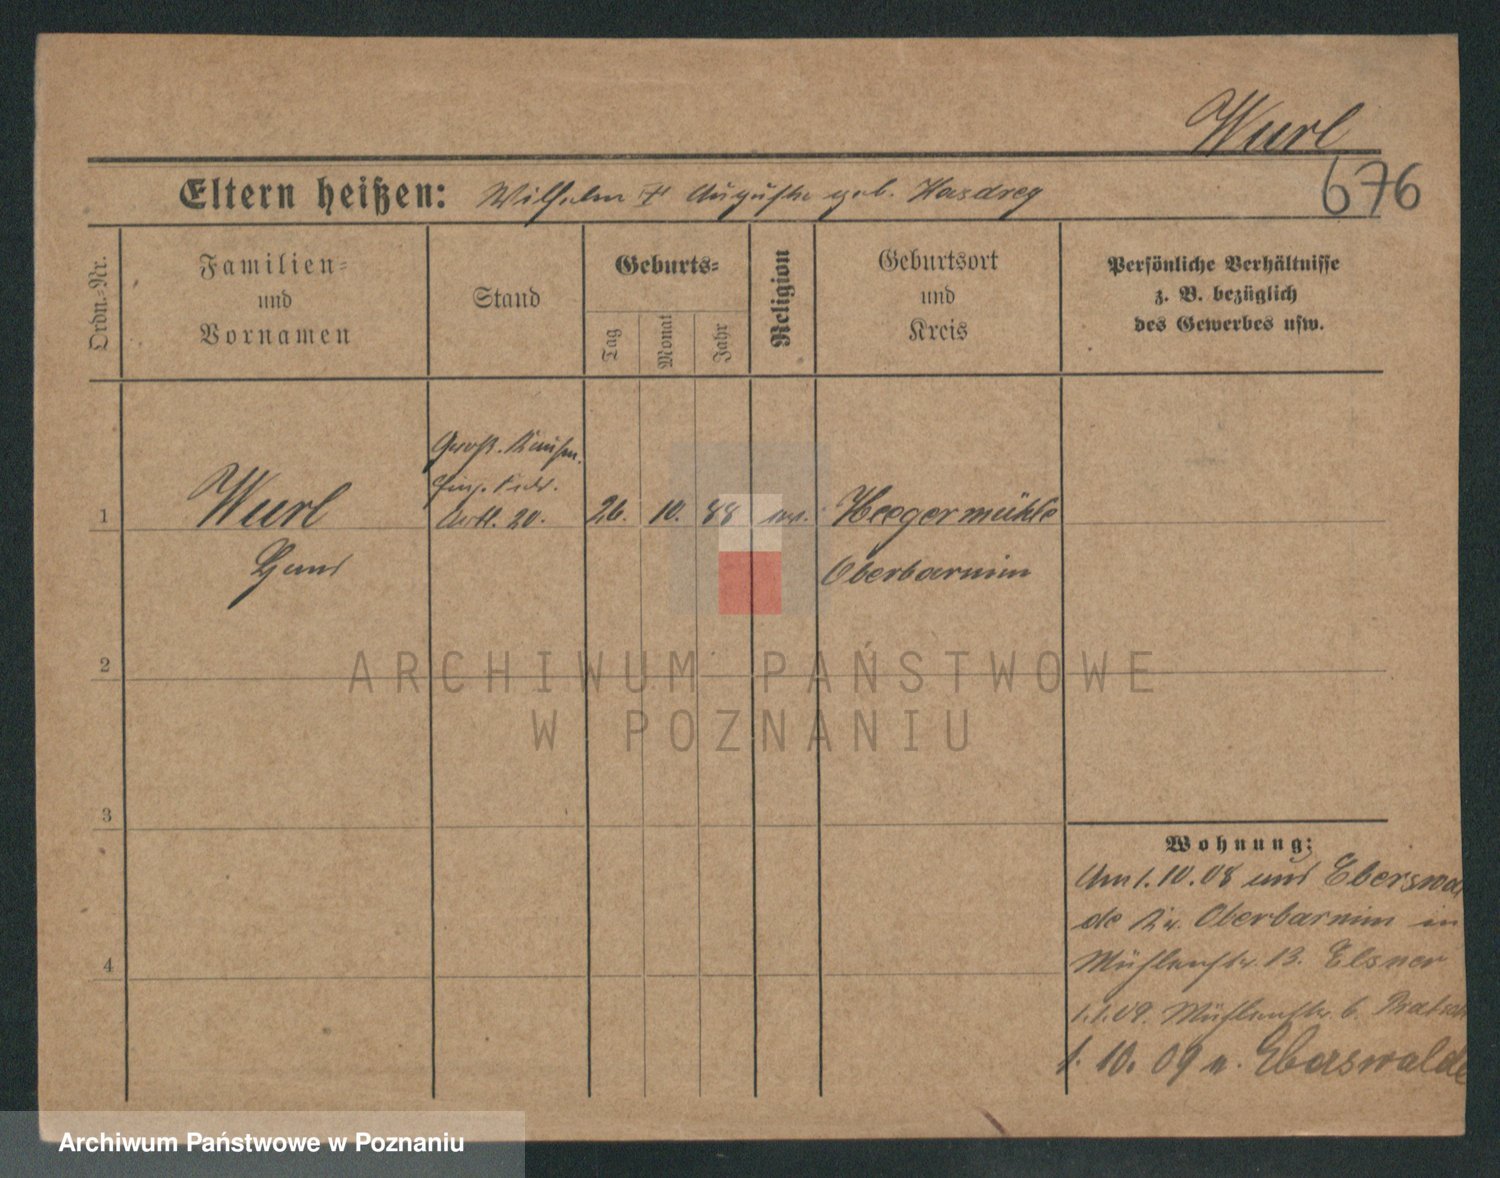 Wurl
676
Eltern heißen: Wilhelm † Auguste geb.
Ordn.-Nr.
Familien-
und
Vornamen
Stand
Geburts-
Tag
Monat
Jahr
Religion
Geburtsort
und
Kreis
Persönliche Verhältnisse
z. B. bezüglich
des Gewerbes usw.
1
Wurl
Hans
Artl. 20.
26.
10.
88
ev.
Heegermühle
Oberbarnim
2
3
4
Wohnung:
Am 1.10.08 aus Eberswal
de Kr. Oberbarnim in
Mühlenstr. 13. Elsner
1.1.09. Mühlenstr. 6.
1. 10. 09 n. Eberswalde
ARCHIWUM PAŃSTWOWE
W POZNANIU
Archiwum Państwowe w Poznaniu